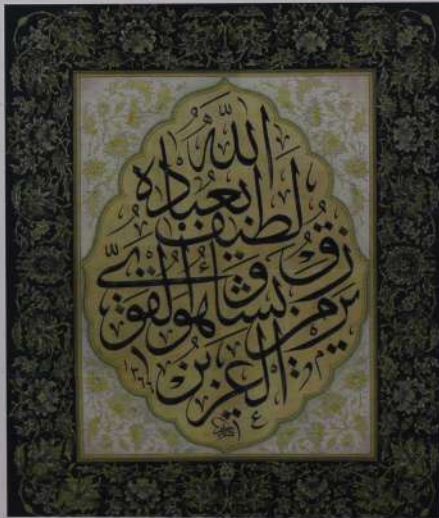 الله
لطيف بعباده
يرزق من يشاء وهو القوي
العزيز